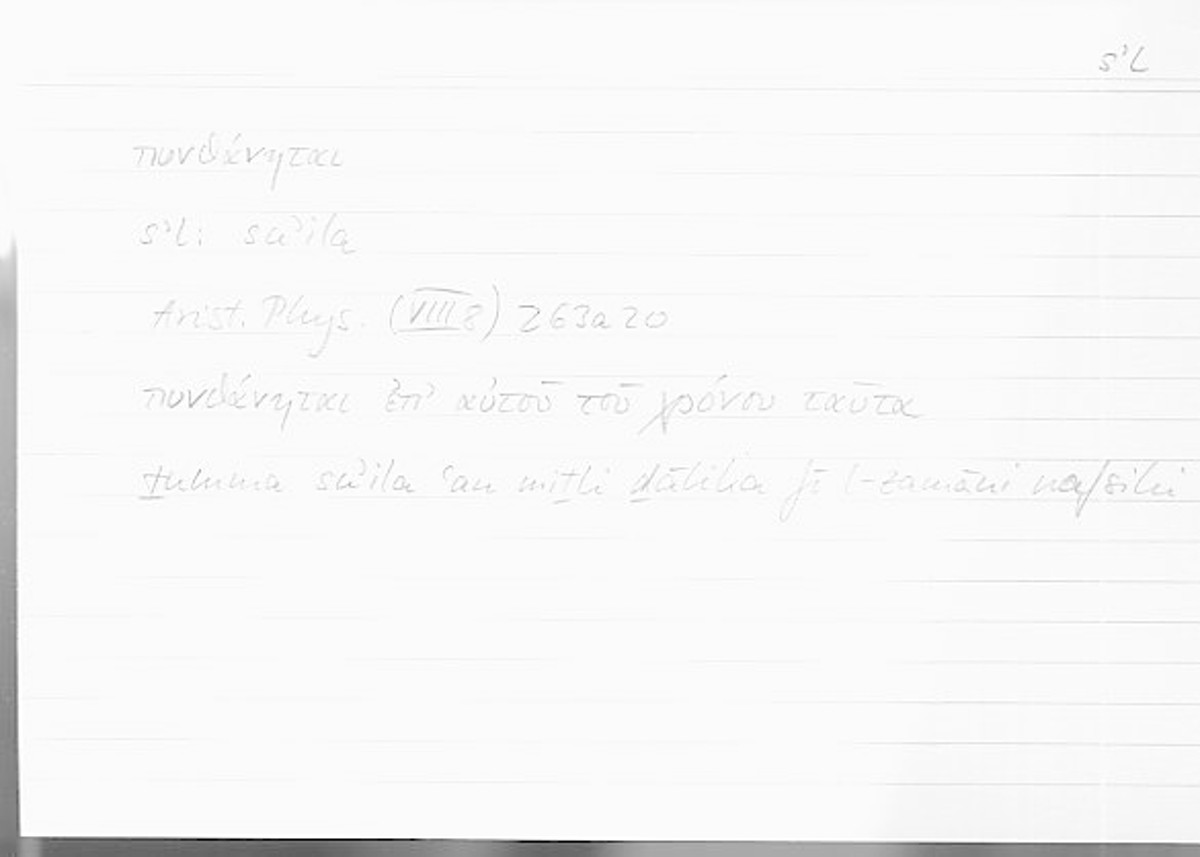 sʾL
πυνθάνηται
sʾL: suʾila
Arist. Phys. (VIII 8) 263a20
πυνθάνηται ἐπ' αὐτοῦ τοῦ χρόνου ταῦτα
ṯumma suʾila ʿan miṯli ḏālika fī l-zamāni nafsihi